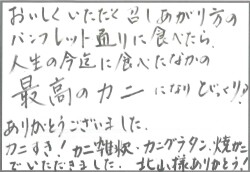 おいしくいただく召しあがり方の
パンフレット通りに食べたら、
人生の今迄に食べたなかの
最高のカニになりびっくり♪
ありがとうございました。
カニすき!カニ雑炊・カニグラタン、焼ガニ
でいただきました。北山様ありがとう!